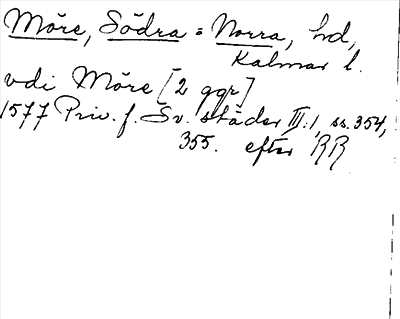 Möre, Södra = Norra, hd,
Kalmar l.
vdi Möre [2 ggr]
1577 Priv. f. Sv. städer III:1, ss. 354,
355. efter RR